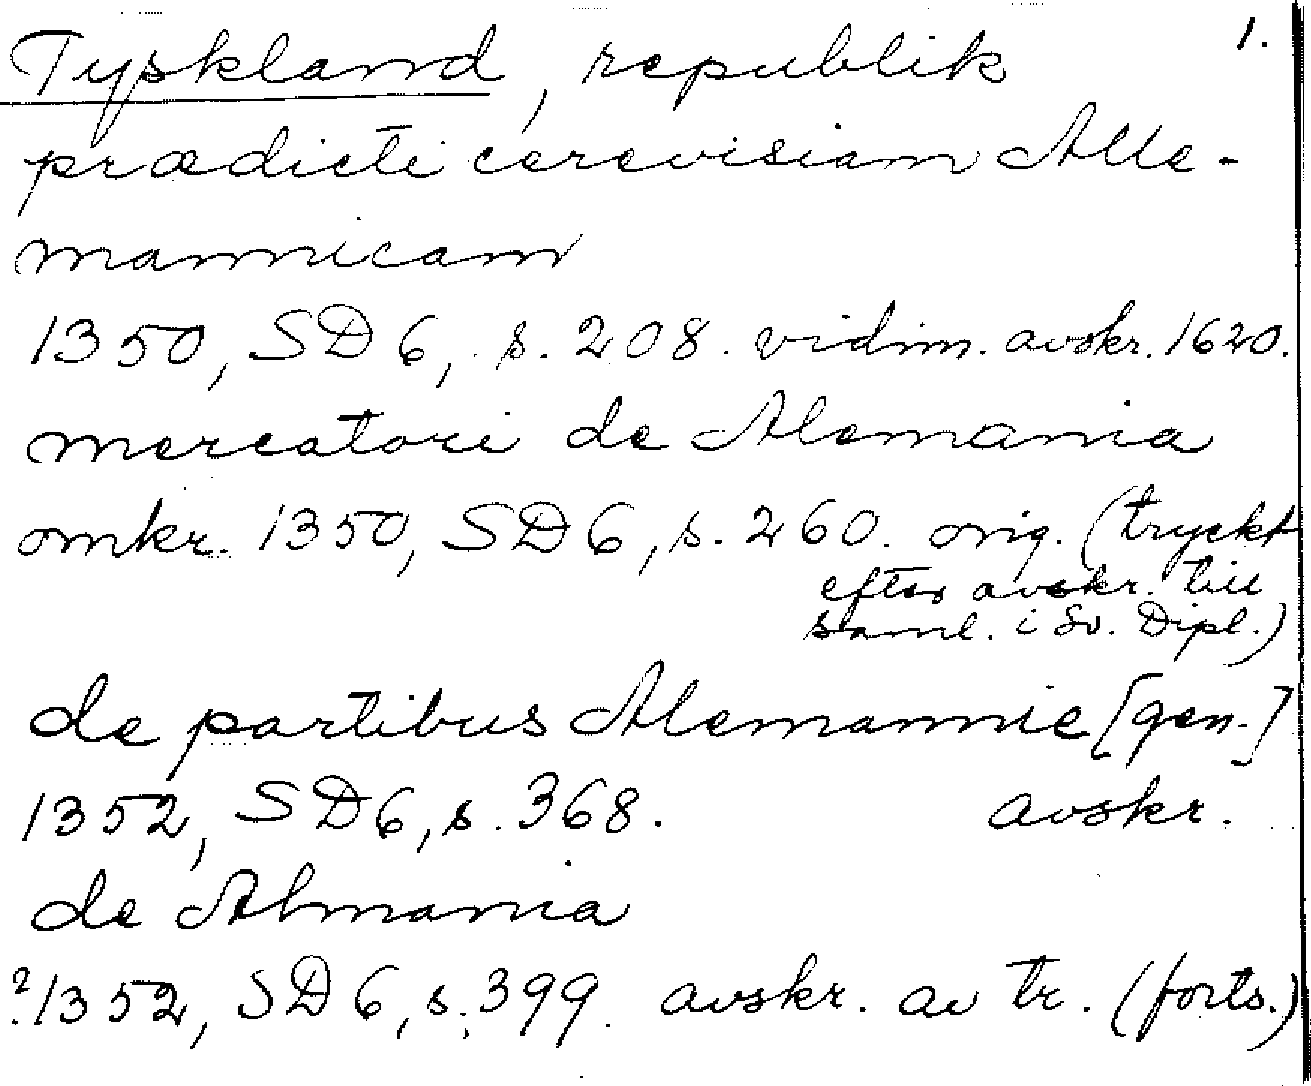 Tyskland, republik 1.
prædicti cerevisiam Alle-
mannicam
1350, SD 6, s. 208. vidim. avskr. 1620.
mercatori de Alemania
omkr. 1350, SD 6, s. 260. orig. (tryckt
efter avskr. till
saml. i Sv. Dipl.)
de partibus Alemannie [gen.]
1352, SD 6, s. 368. avskr.
de Almania
?1352, SD 6, s. 399. avskr. av tr. (forts.)